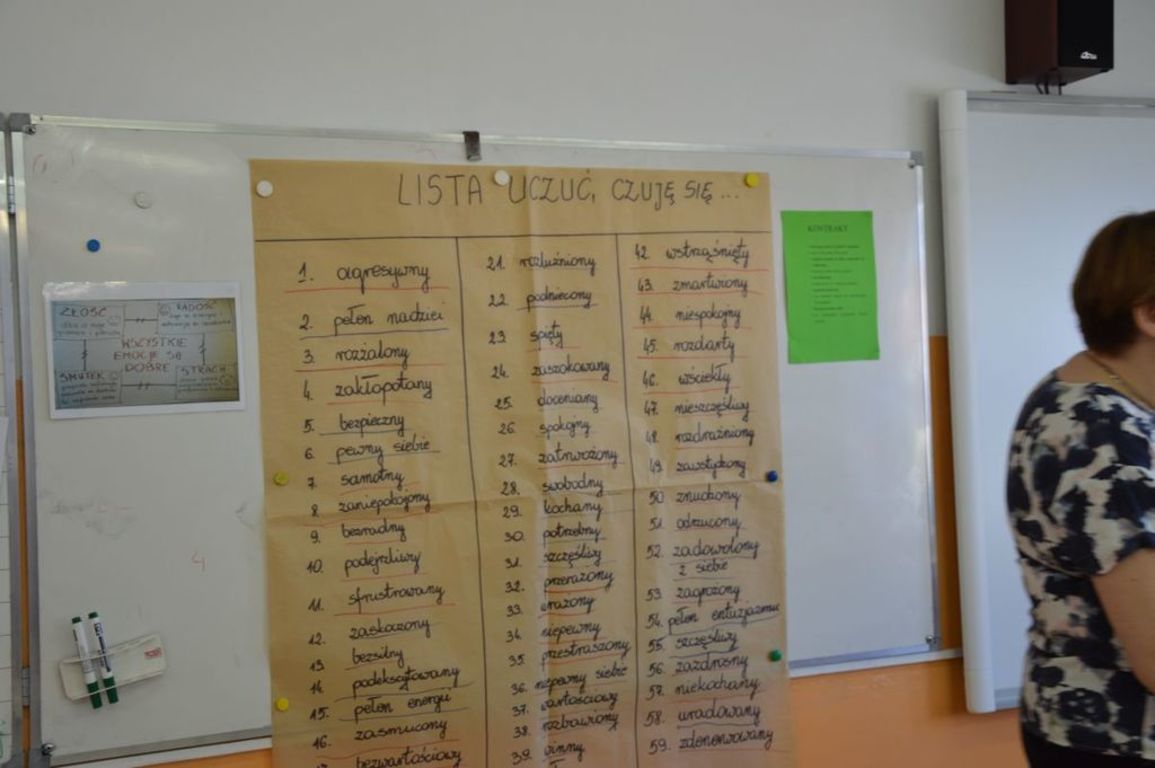 LISTA UCZUĆ, CZUJĘ SIĘ...
1. agresywny
2. pełen nadziei
3. rozżalony
4. zakłopotany
5. bezpieczny
6. pewny siebie
7. samotny
8. zaniepokojony
9. bezradny
10. podejrzliwy
11. sfrustrowany
12. zaskoczony
13. bezsilny
14. podekscytowany
15. pełen energii
16. zasmucony
bezwartościowy
21. rozluźniony
22. podniecony
23. spięty
24. zaszokowany
25. doceniany
26. spokojny
27. zatrwożony
28. swobodny
29. kochany
30. potrzebny
31. szczęśliwy
32. przerażony
33. urażony
34. niepewny
35. przestraszony
36. niepewny siebie
37. wartościowy
38. rozbawiony
39. winny
42. wstrząśnięty
43. zmartwiony
44. niespokojny
45. rozdarty
46. wściekły
47. nieszczęśliwy
48. rozdrażniony
49. zawstydzony
50 znudzony
51. odrzucony
52. zadowolony
z siebie
53 zagrożony
54. pełen entuzjazmu
55. szczęśliwy
56. zazdrosny
57. niekochany
58. uradowany
59. zdenerwowany
ZŁOŚĆ
RADOŚĆ
WSZYSTKIE
EMOCJE SĄ
DOBRE
SMUTEK
STRACH
KONTRAKT
4